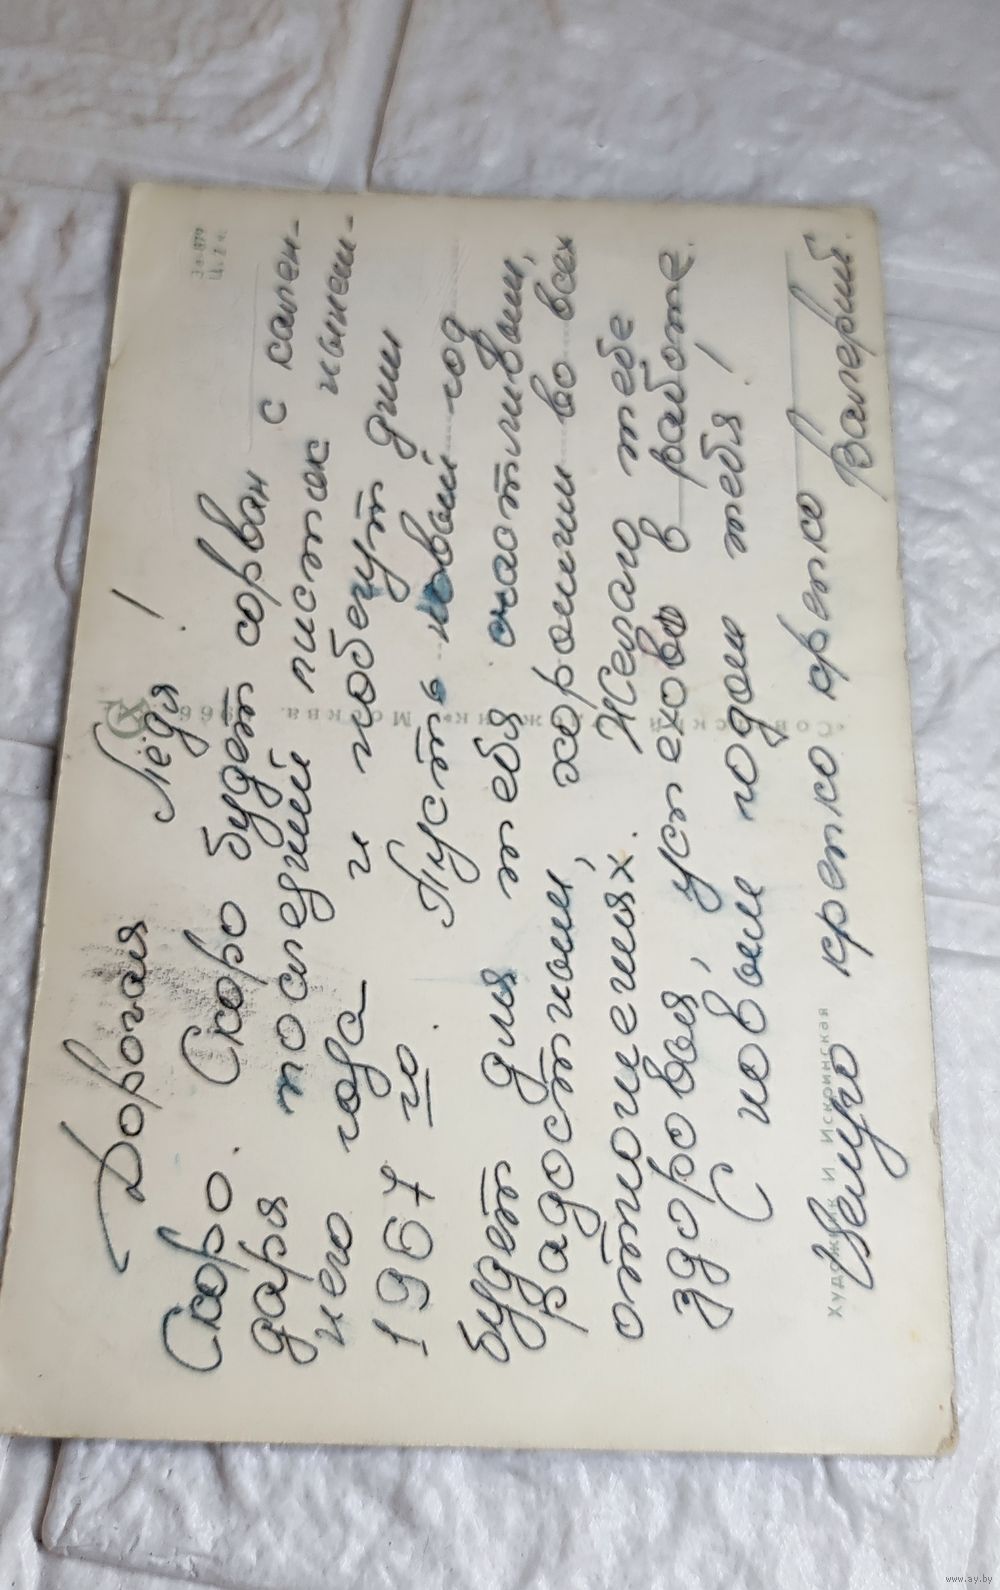 Дорогая Лёдя!
Скоро. Скоро будет сорван с кален-
даря последний листок нынеш-
него года и побегут дни
1967 го. Пусть новый год
будет для тебя счастливым,
радостным, хорошим во всех
отношениях. Желаю тебе
здоровья, успехов в работе.
С новым годом тебя!
Целую крепко крепко Валерий.
3з-879
Ц. 2 к.
«Советский художник». Москва. 1966
Художник И Искринская
www.ay.by